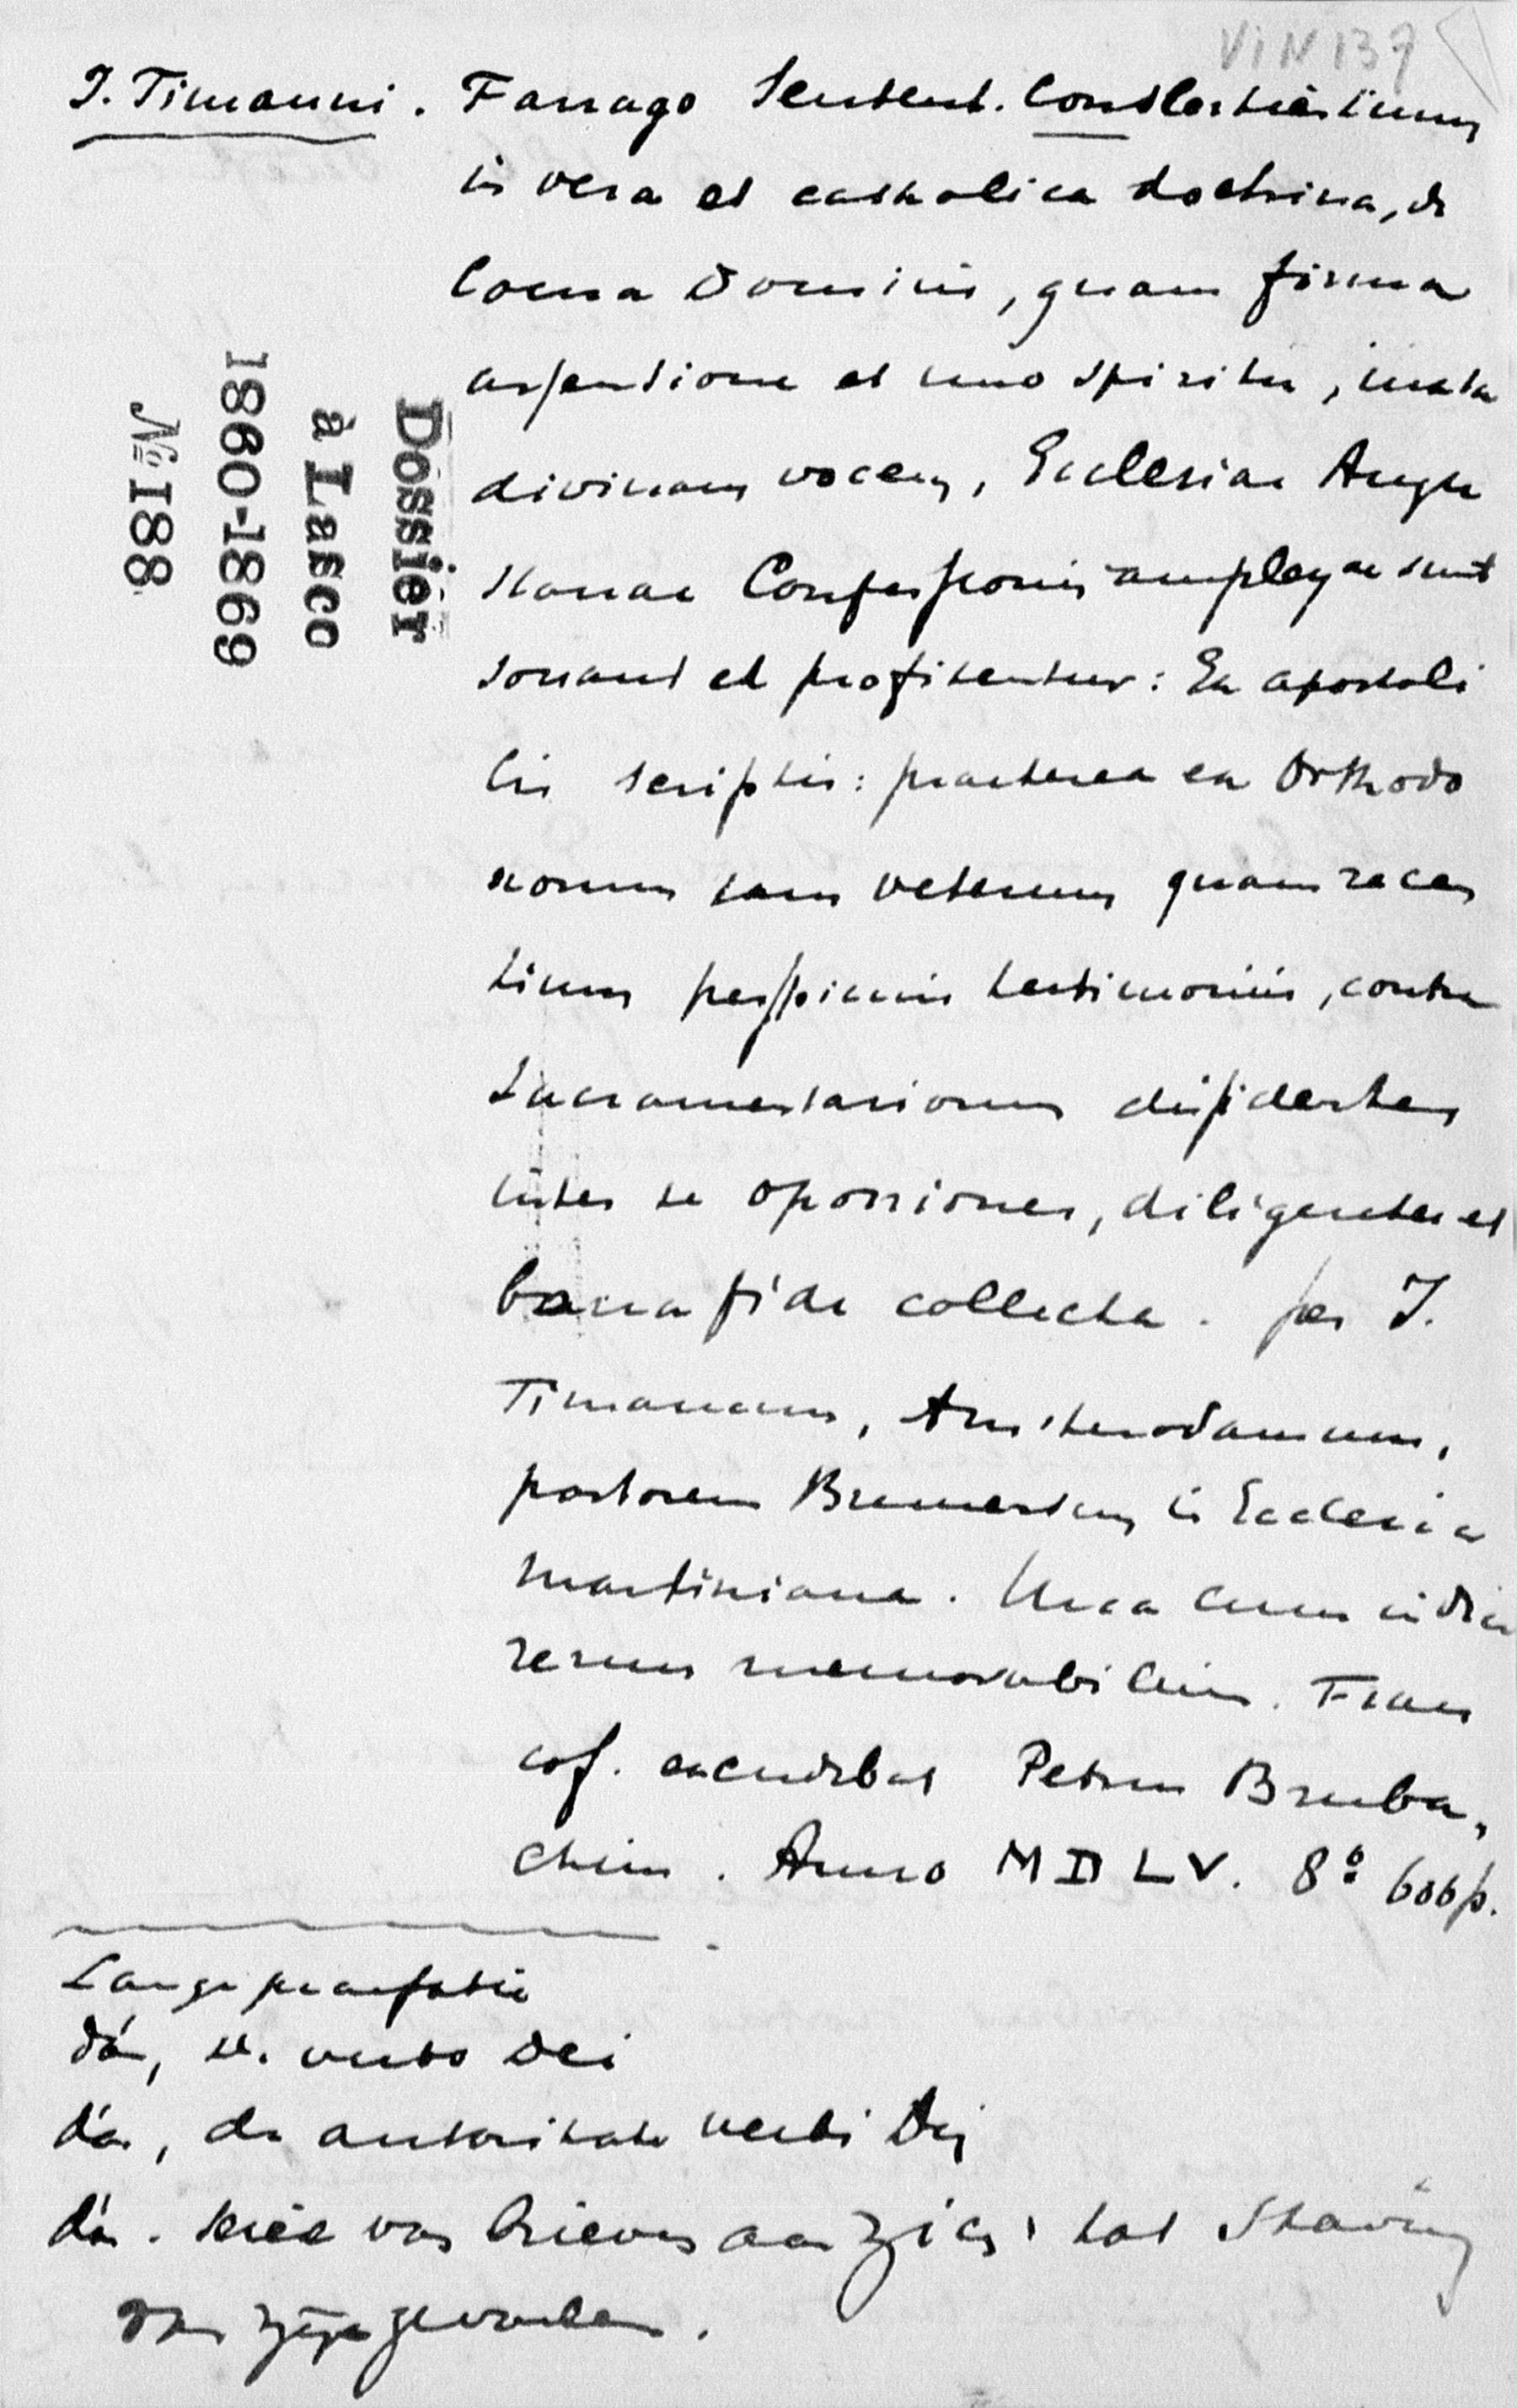 VIN 137
J. Timanni. Farrago Sentent. Consentientium
in vera et catholica doctrina, de
Coena Domini, quam firma
assensione et uno spiritu, iuxta
divinam vocem, Ecclesiae Augu
stanae Confessionis amplexae sunt
sonant et profitentur: Ex apostoli
cis scriptis: praeterea ex Orthodo
xorum tam veterum quam recen
tium perspicuis testimoniis, contra
Sacramentariorum dissidentes
inter se opiniones, diligenter et
bona fide collecta. per J.
Timannum, Amsterodamum,
pastorem Bremensem in Ecclesia
Martiniana. Una cum indice
rerum memorabilium. Fran
cof. excudebat Petrus Bruba,
chius. Anno MDLV. 8º 606 p.
Dossier
à Lasco
1860-1869
№ 188
Lange praefatie
dán, de verbo Dei
dán, de autoritate verbi Dei
dán. serie van brieven aan zijn